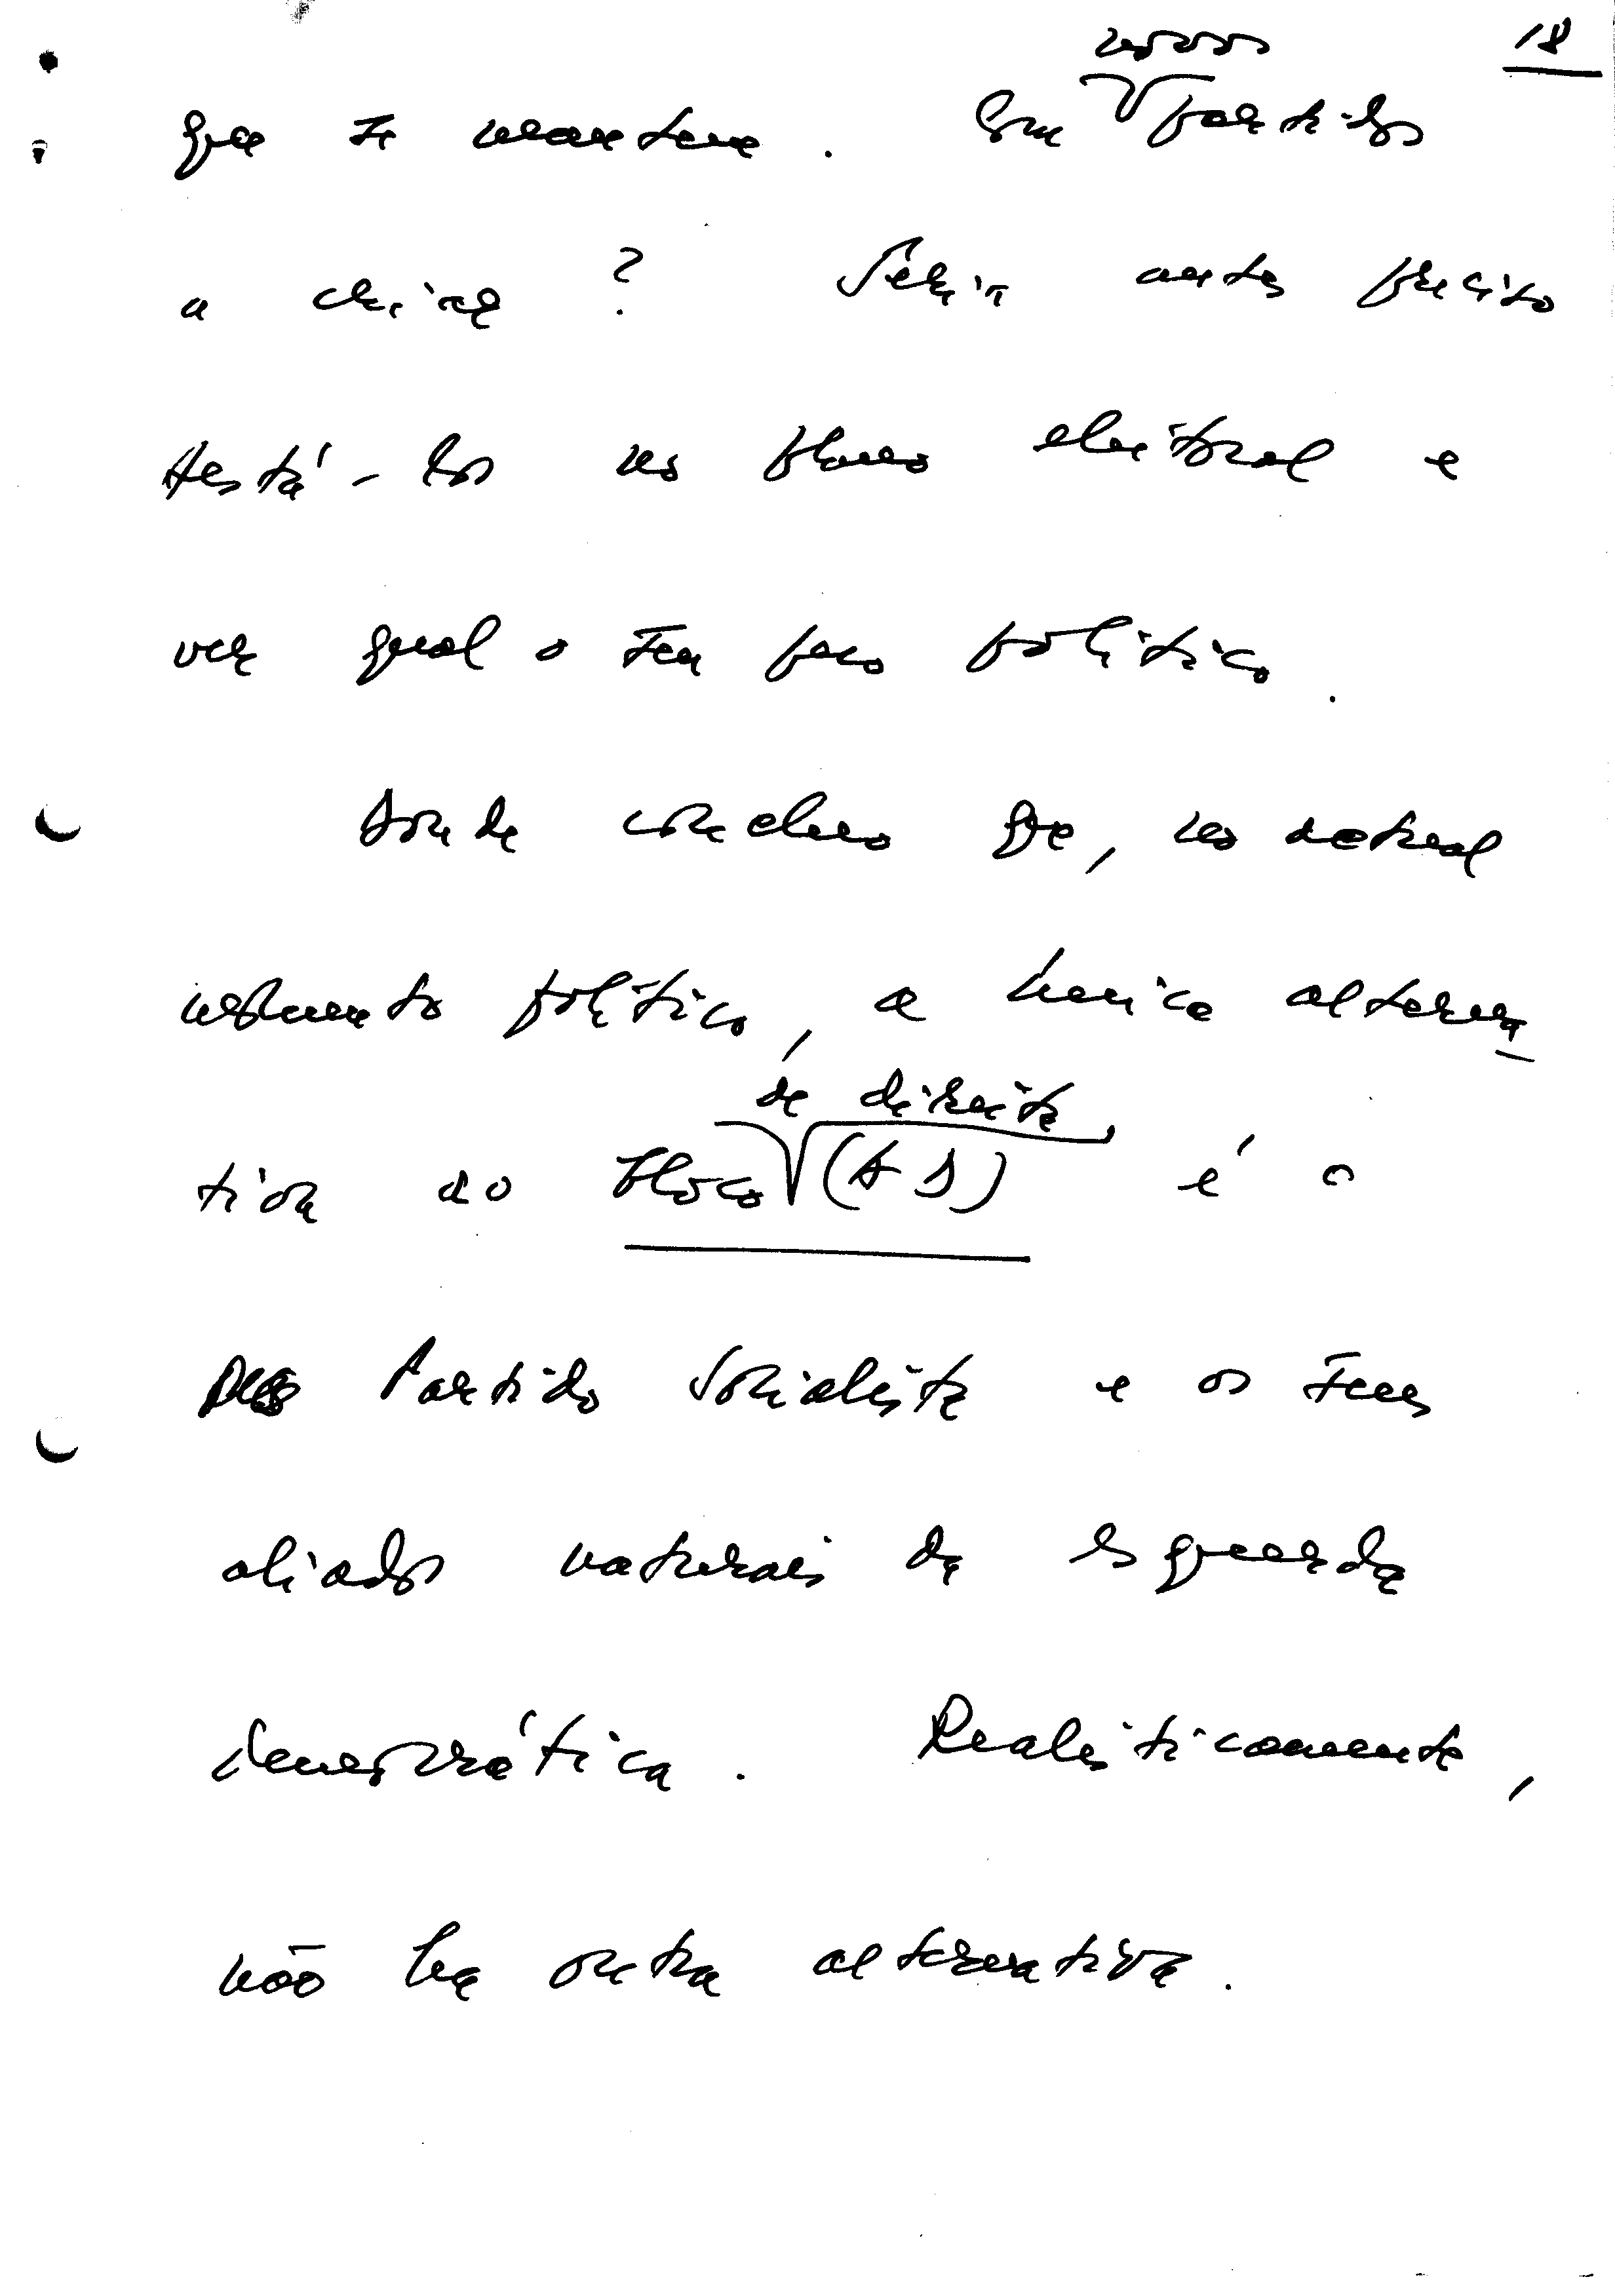 18
novos
que se mantem. Em partidos
a criar? Seria antes preciso
testá-los no plano eleitoral e
ver qual o seu peso político.
Donde concluo que, no actual
momento político, a única alterna
de direita,
tiva ao bloco (AD) é o
Partido Socialista e os seus
aliados naturais da esquerda
democrática. Realisticamente,
não há outra alternativa.